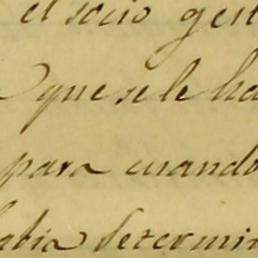 el socio gest
que se le ha
para cuando
abia determin